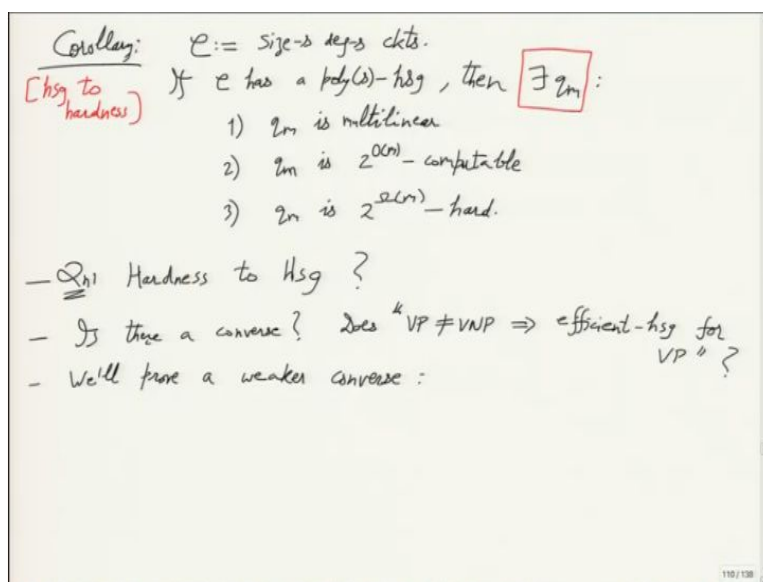 Corollary: C := size-s deg-s ckts.
[hsg to hardness] If C has a poly(s)-hsg, then ∃ qₘ :
1) qₘ is multilinear
2) qₘ is 2^{O(m)} - computable
3) qₘ is 2^{Ω(m)} - hard.
- Qn: Hardness to Hsg ?
- Is there a converse? Does "VP ≠ VNP ⇒ efficient-hsg for
VP" ?
- We'll prove a weaker converse :
110 / 138